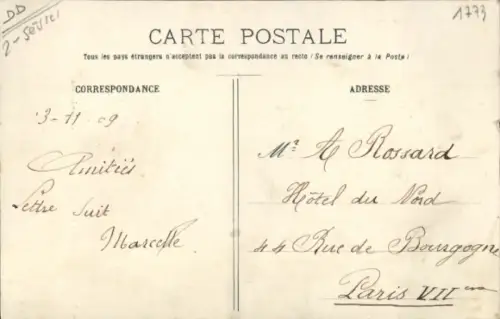 DD
2-Sèvres
1773
CARTE POSTALE
Tous les pays étrangers n'acceptent pas la correspondance au recto (Se renseigner à la Poste)
CORRESPONDANCE
3-11 09
Amitiés
Lettre suit
Marcelle
ADRESSE
Mr A Rossard
Hôtel du Nord
44 Rue de Bourgogne
Paris VIIme